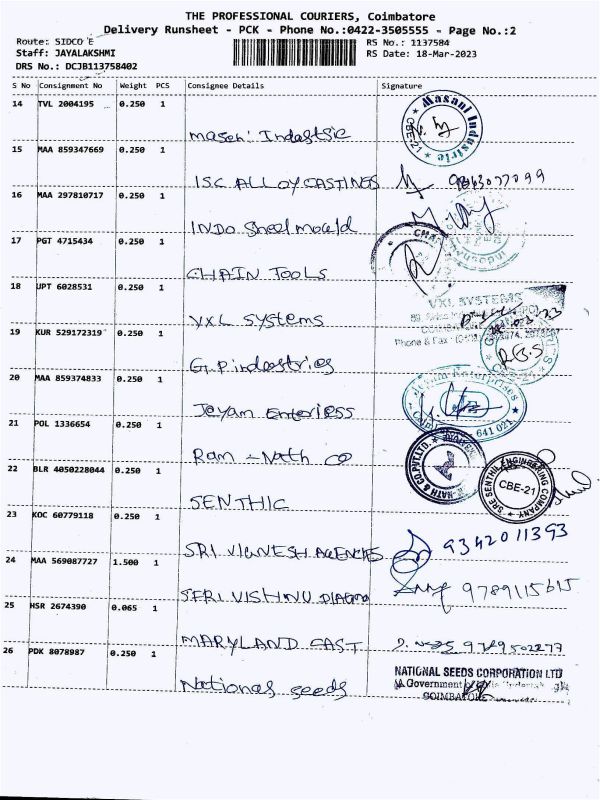 THE PROFESSIONAL COURIERS, Coimbatore
Delivery Runsheet - PCK - Phone No.:0422-3505555 - Page No.:2
Route: SIDCO E
RS No.: 1137584
Staff: JAYALAKSHMI
RS Date: 18-Mar-2023
DRS No.: DCJB113758402
S No Consignment No Weight PCS Consignee Details Signature
14 TVL 2004195 0.250 1
Masani Industrie
CBE-21
15 MAA 859347669 0.250 1
I.S.C ALLOY CASTINGS
16 MAA 297810717 0.250 1
INDO Shell mould
17 PGT 4715434 0.250 1
CHAIN TOOLS
18 UPT 6028531 0.250 1
VXL SYSTEMS
VXL Systems
19 KUR 529172319 0.250 1
G.P.industries
20 MAA 859374833 0.250 1
Jeyam Enterprises
641 021
21 POL 1336654 0.250 1
Ram - Nath Co
NATH & CO.PVT.LTD.
22 BLR 4050228044 0.250 1
SRE SENTHIL ENGINEERING COMPANY
CBE-21
SENTHIL
23 KOC 60779118 0.250 1
SRI VIGNESH AGENCIES 9342011393
24 MAA 569087727 1.500 1
SFRI VISHNU
25 HSR 2674390 0.065 1
MARYLAND CAST
26 PDK 8078987 0.250 1
NATIONAL SEEDS CORPORATION LTD
COIMBATORE
National seeds